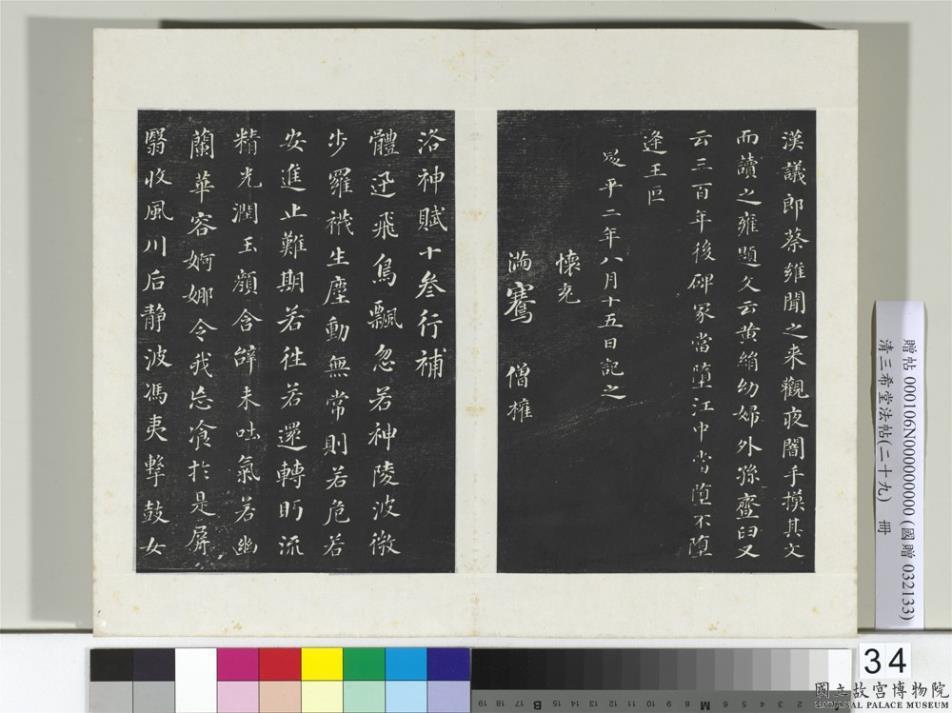 漢議郎蔡雍聞之来觀夜闇手摸其文
而讀之雍題文云黄絹幼婦外孫齏臼又
云三百年後碑冢當墮江中當墮不墮
逢王叵
昇平二年八月十五日記之
懷充
滿騫 僧權
洛神賦十叁行補
體迅飛鳥飄忽若神陵波微
步羅襪生塵動無常則若危若
安進止難期若往若還轉眄流
精光潤玉顏含辭未吐氣若幽
蘭華容婀娜令我忘飡於是屏
翳收風川后静波馮夷擊鼓女
贈帖 000106N000000000 (國贈 032133)
清三希堂法帖(二十九) 冊
34
國立故宮博物院
NATIONAL PALACE MUSEUM